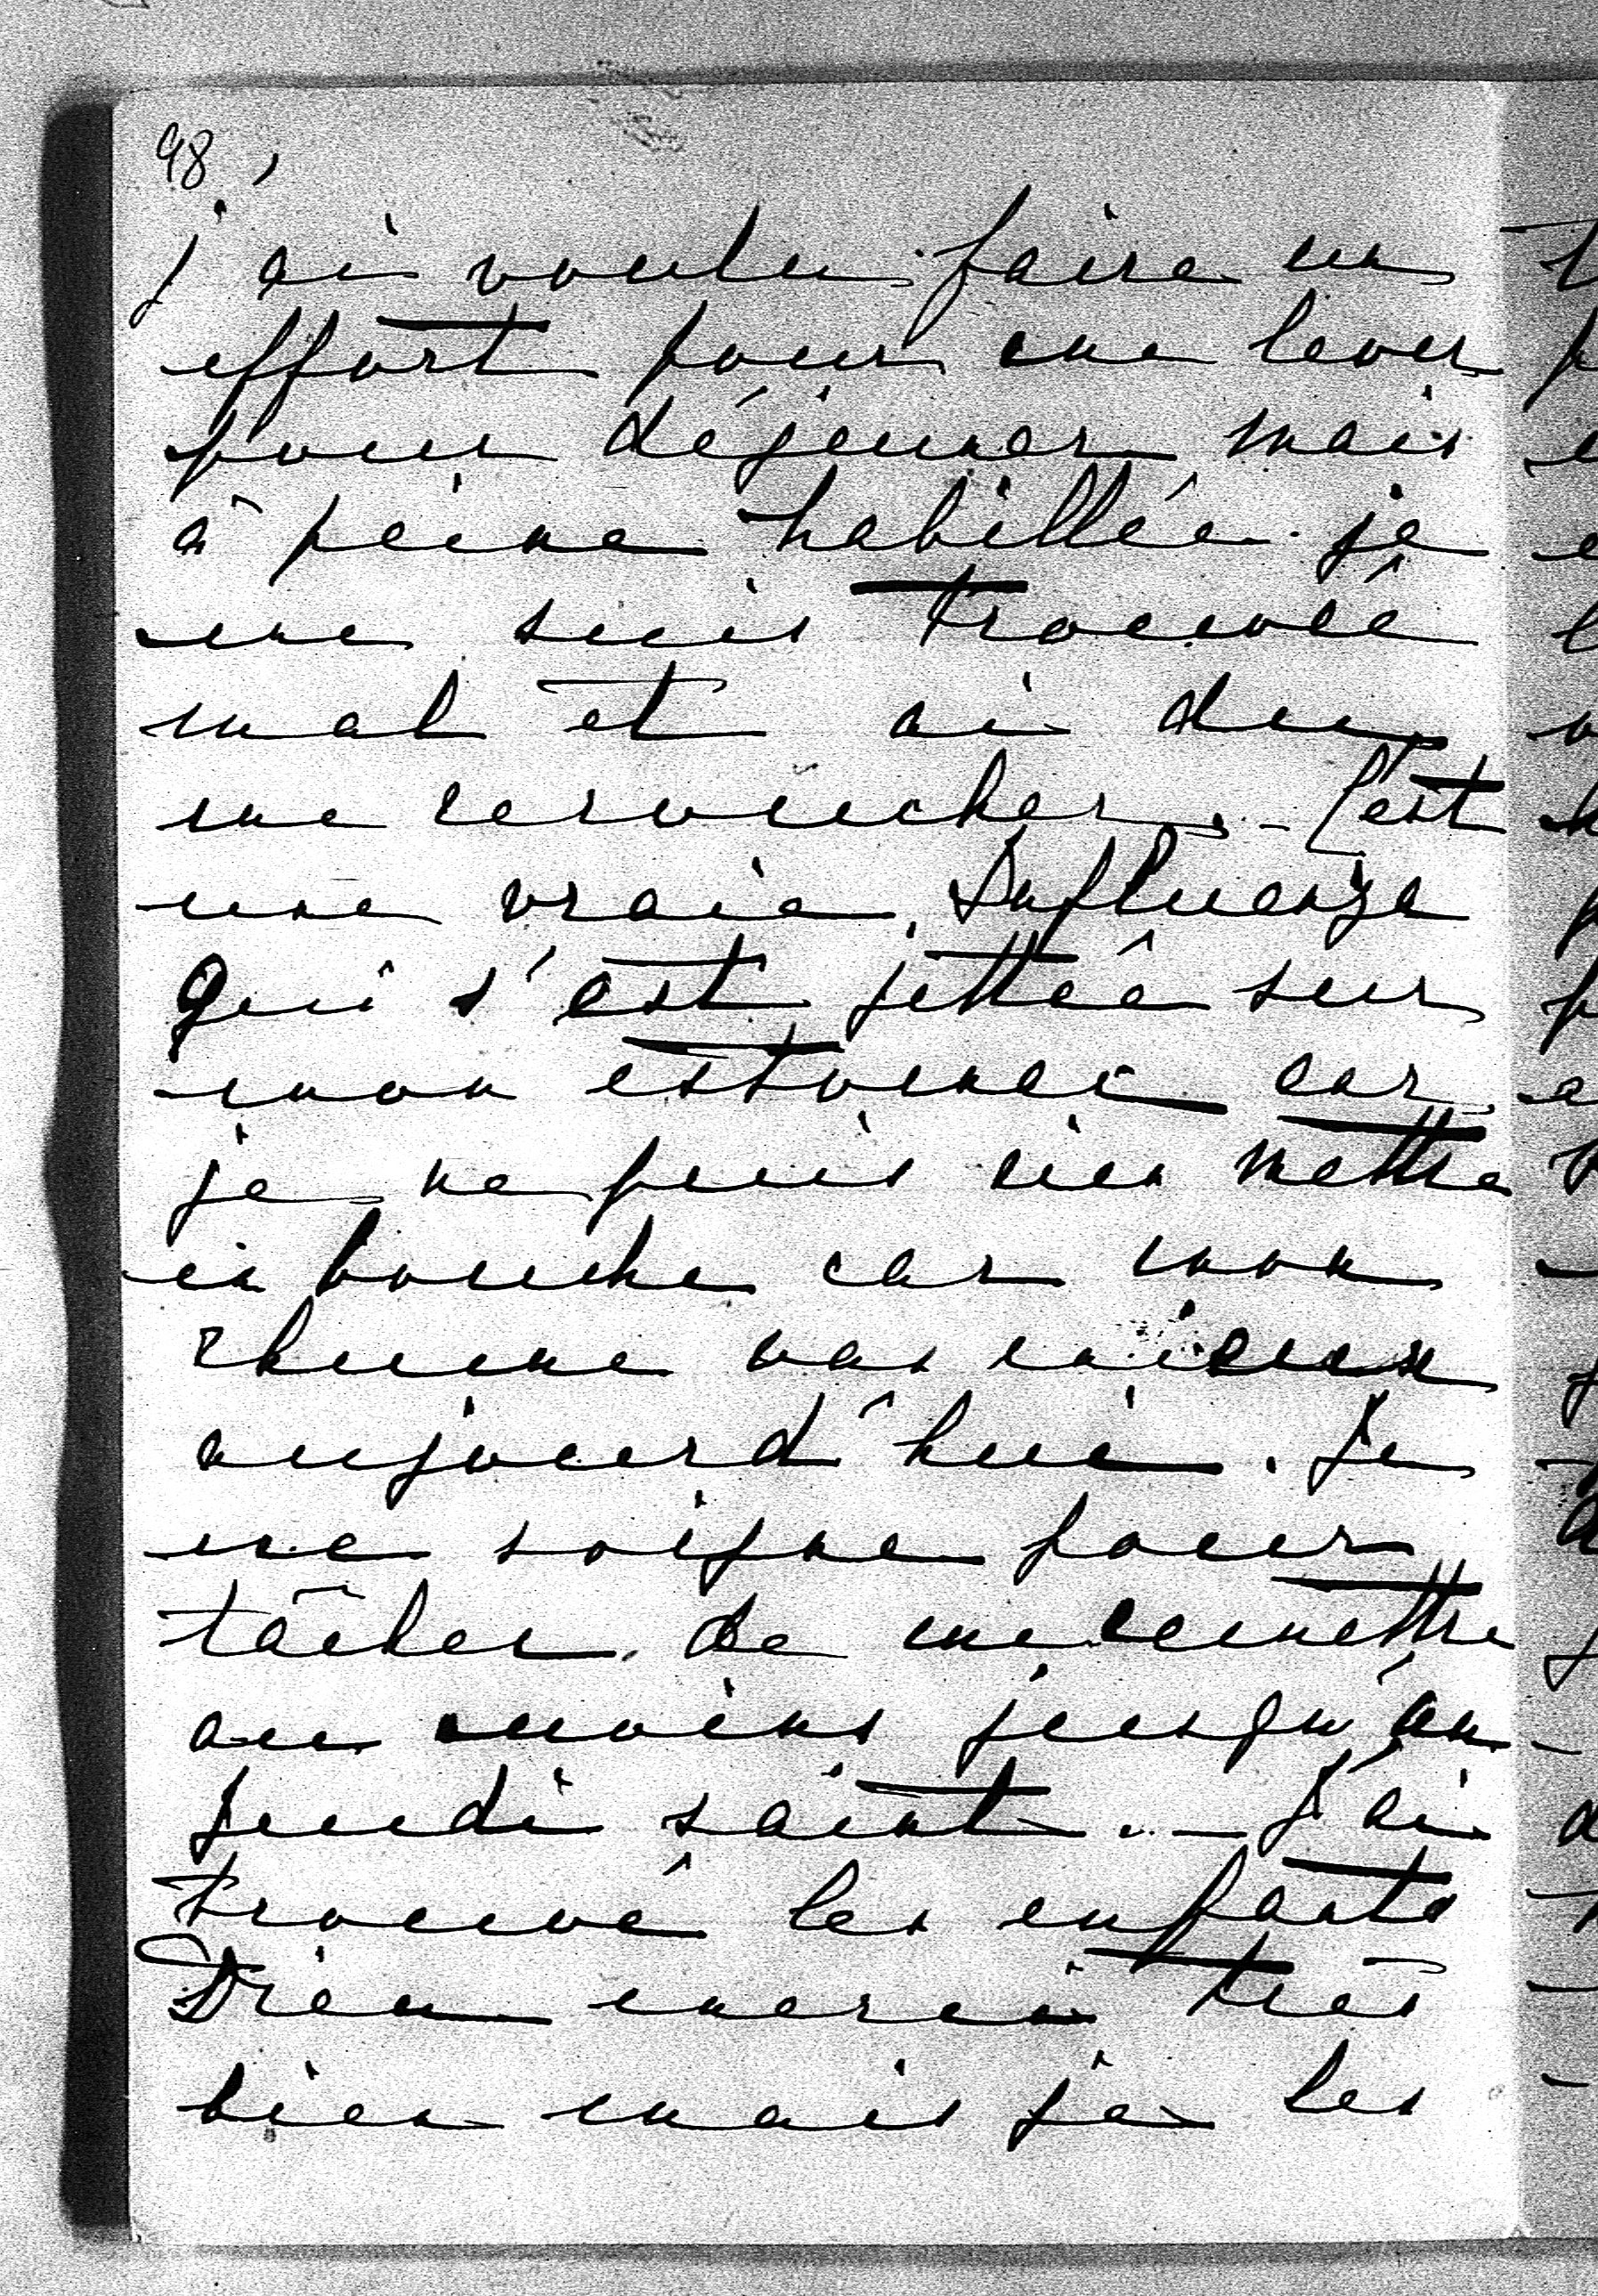 98
j'ai voulu faire un
effort pour me lever
pour déjeuner mais
à peine habillée je
me suis trouvée
mal et ai du
me recoucher. – C'est
une vraie Influenza
qui s'est jettée sur
mon estomac car
je ne puis rien mettre
en bouche car mon
rhume vas mieux
aujourd'hui. Je
me soigne pour
tâcher de me remettre
au moins jusqu'au
Jeudi saint. – J'ai
trouvé les enfants
Dieu merci très
bien mais je les